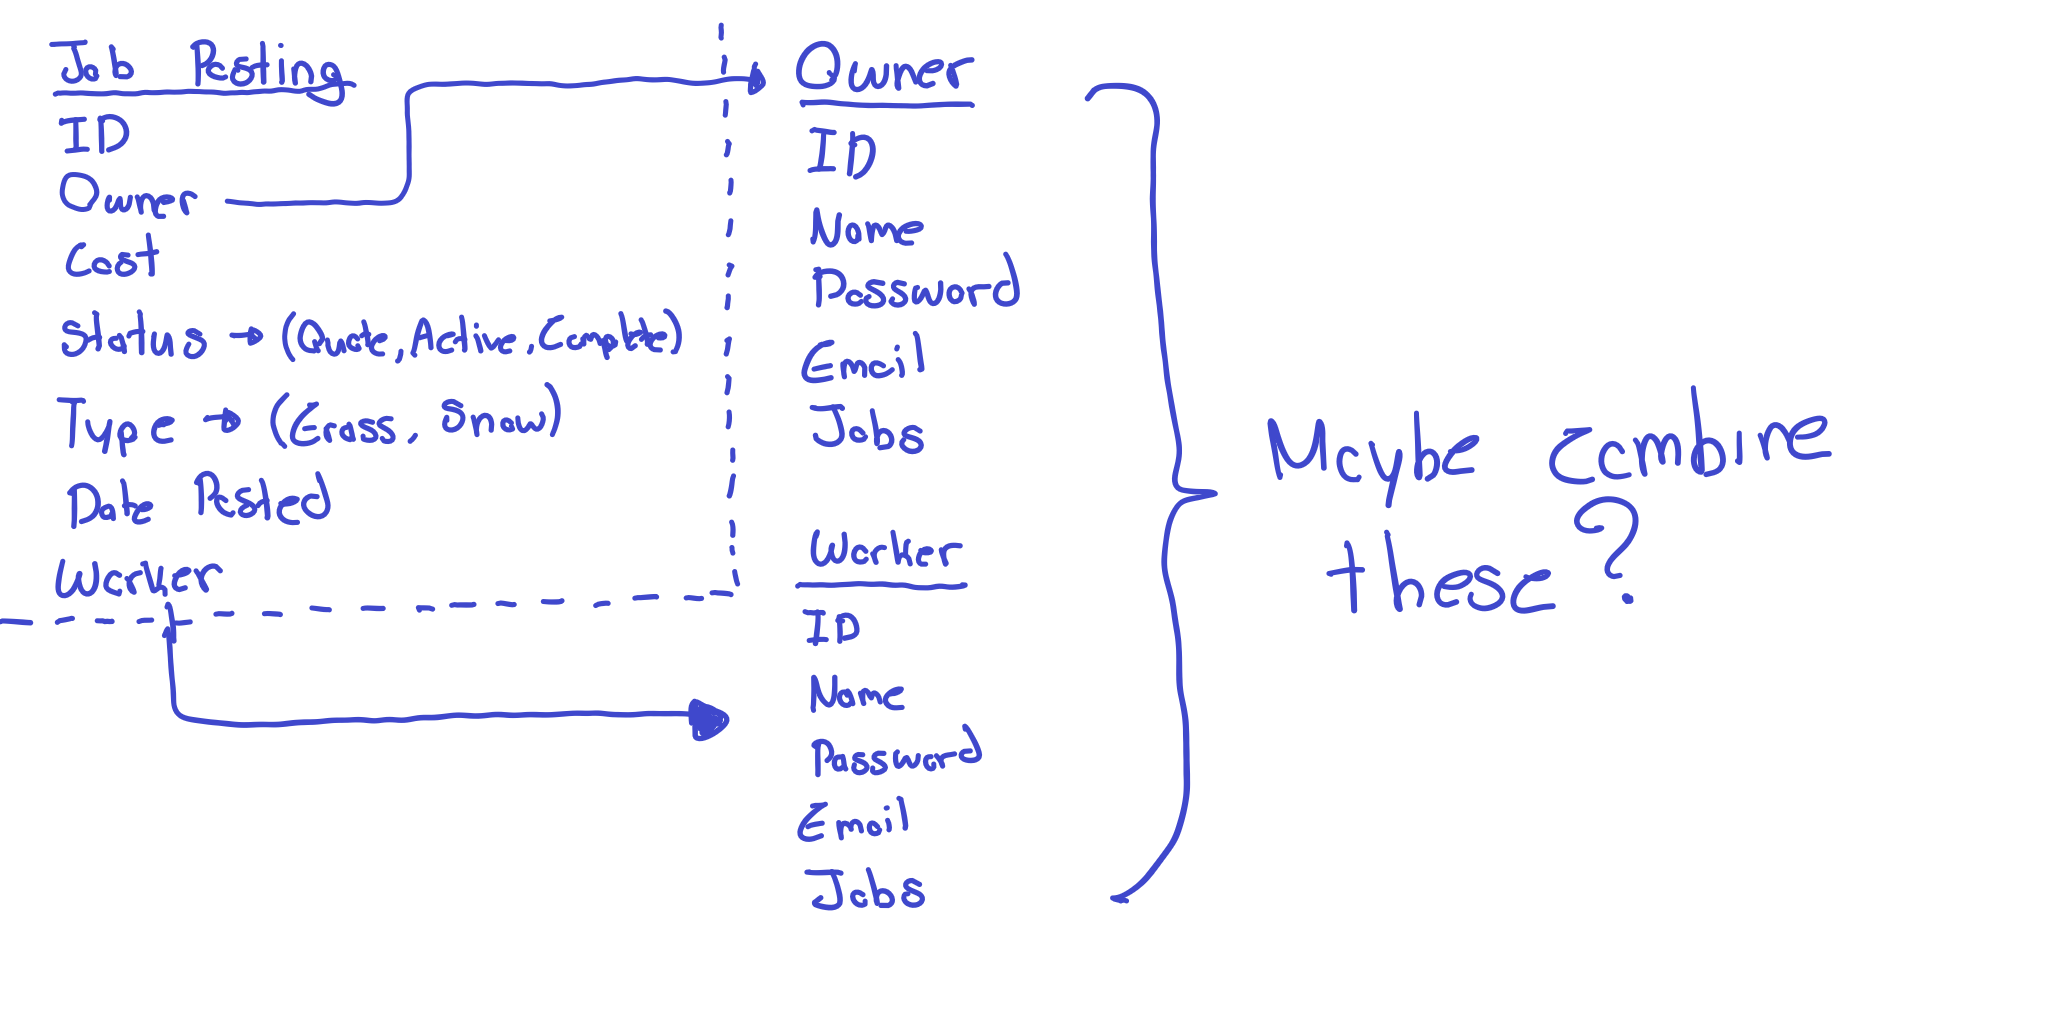 Job Posting
ID
Owner
Cost
Status → (Quote, Active, Complete)
Type → (Grass, Snow)
Date Posted
Worker
Owner
ID
Name
Password
Email
Jobs
Worker
ID
Name
Password
Email
Jobs
Maybe combine
these?